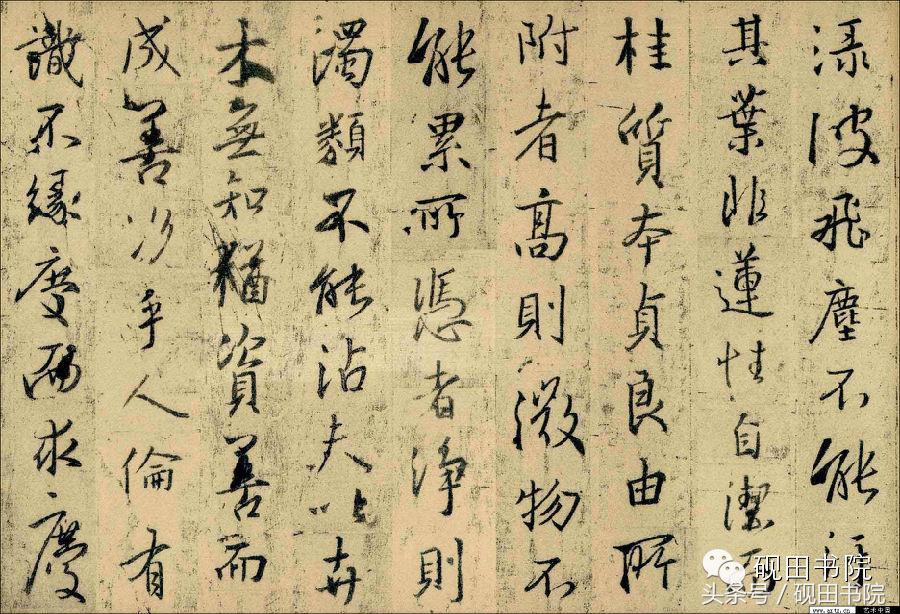 渌波飛塵不能汙
其葉非蓮性自潔而
桂質本貞良由所
附者高則微物不
能累所憑者淨則
濁類不能沾夫以卉
木無知猶資善而
成善況乎人倫有
識不緣慶而求慶
砚田书院
头条号 / 砚田书院
www.artx.cn 艺术中国